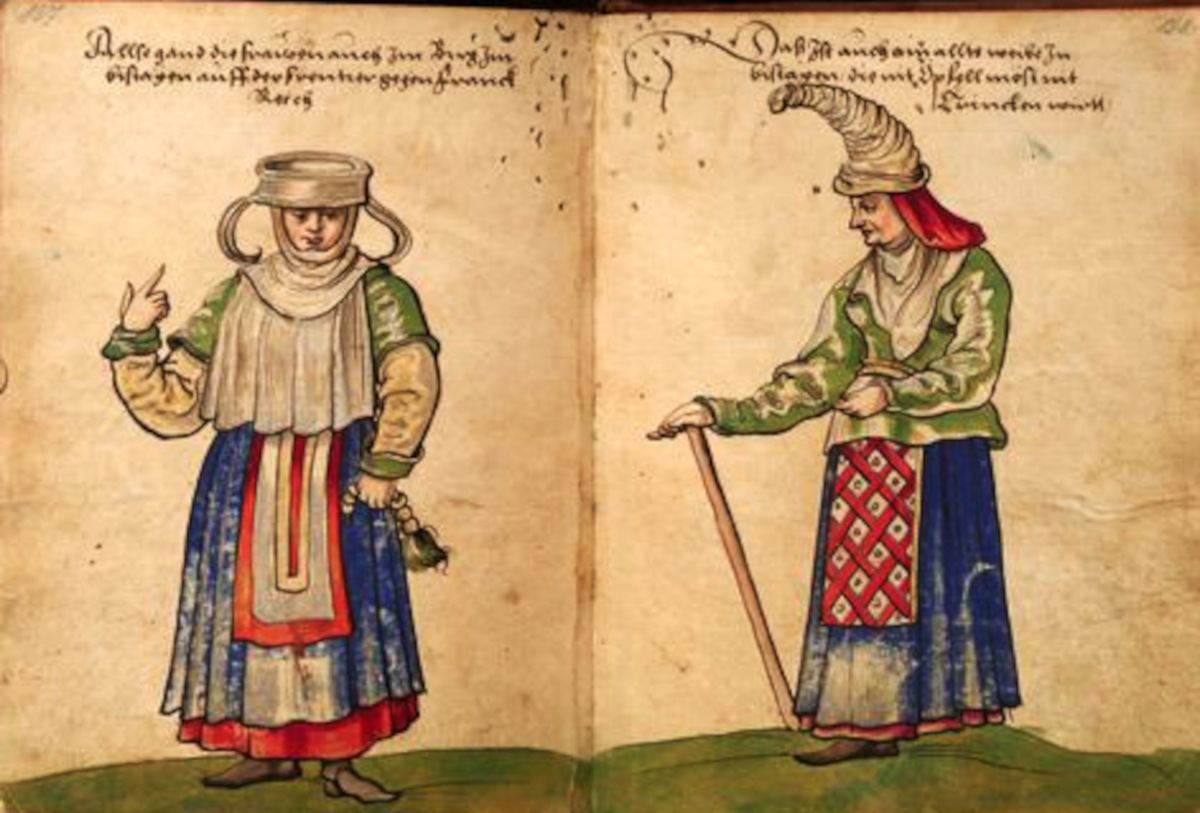 Allso gand die frawen auch Im Birg Inn
biscayen auff der frontier gegen franck
Reich
Das Ist auch ain allts weib In
biscayen die mit Opfell most mit
Trincken wirtt